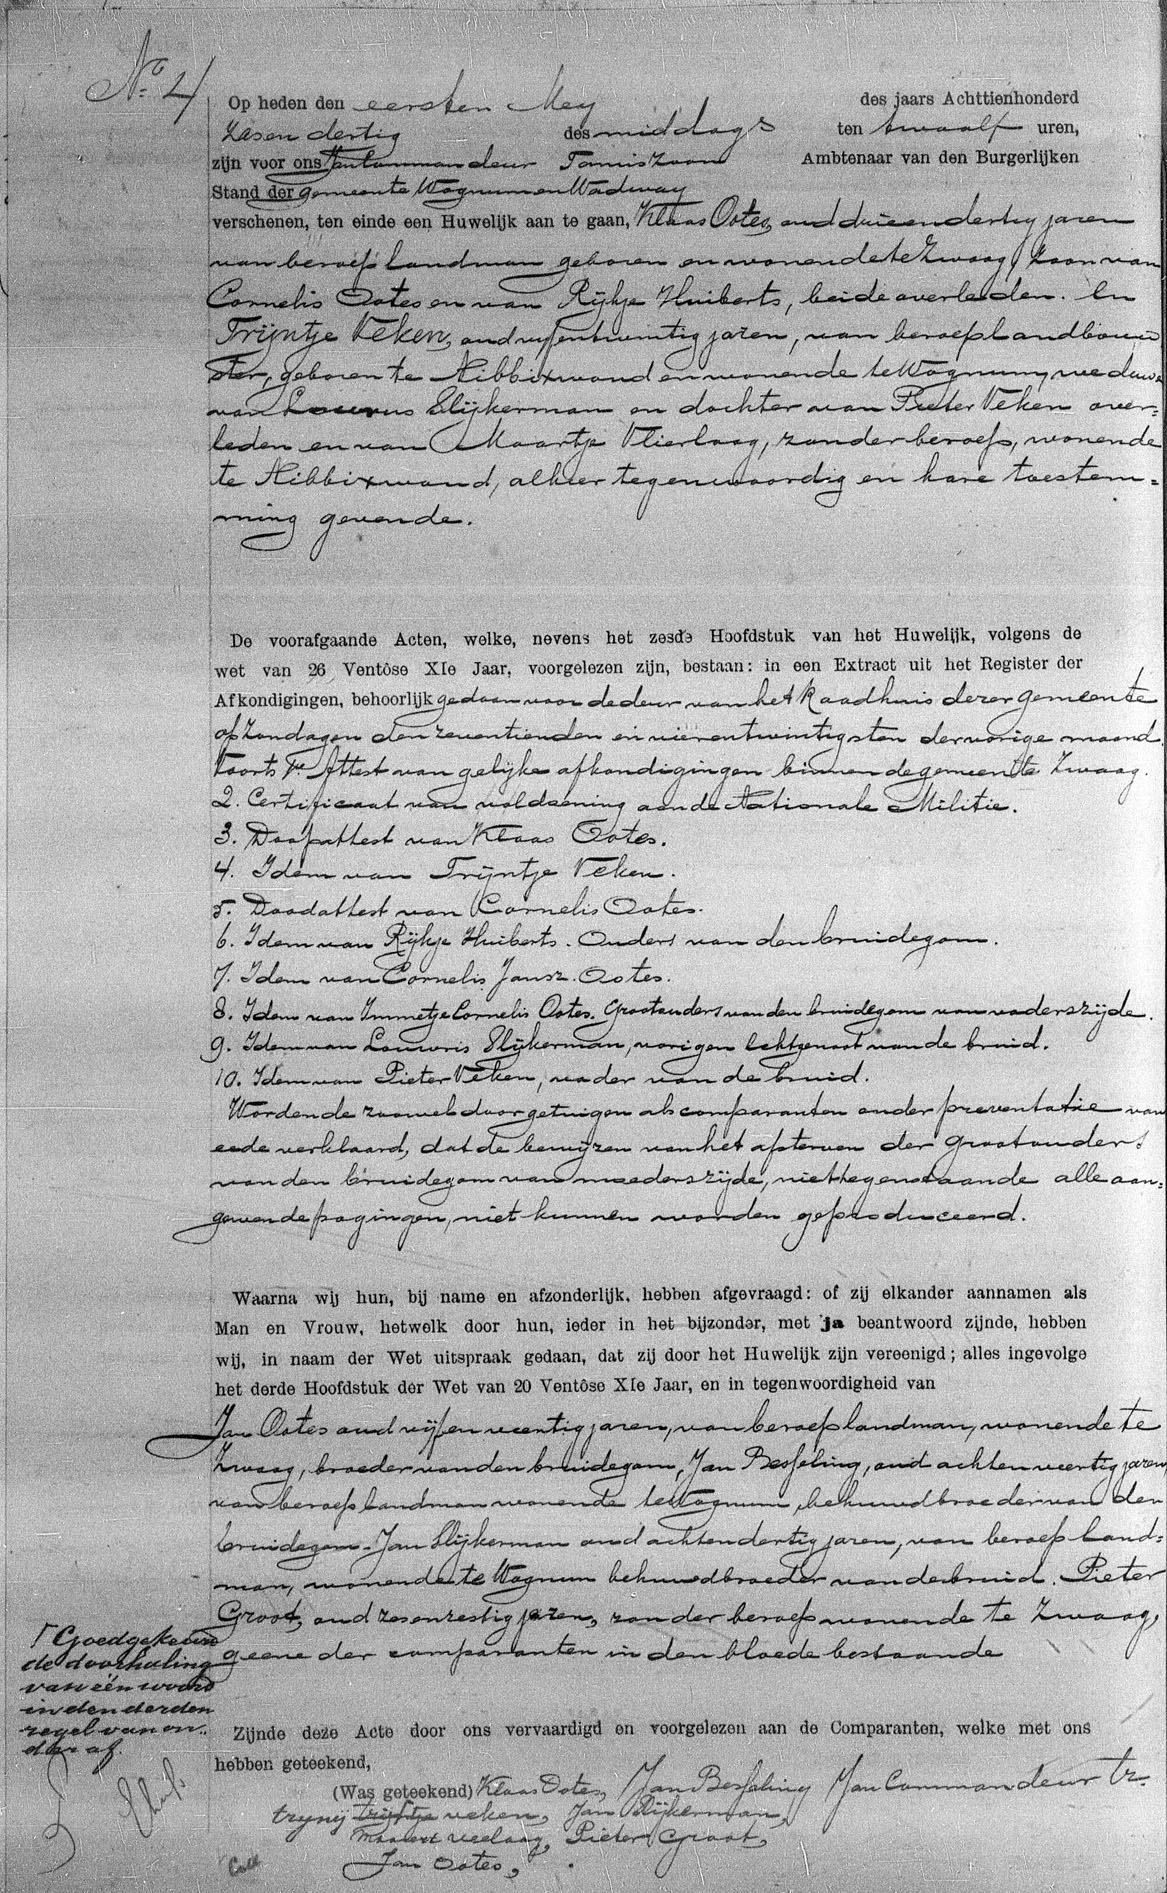 No. 4
Op heden den eersten Mey des jaars Achttienhonderd
zes en dertig des middags ten twaalf uren,
zijn voor ons Jan Commandeur Tamiszoon Ambtenaar van den Burgerlijken
Stand der gemeente Wognum en Wadway
verschenen, ten einde een Huwelijk aan te gaan, Klaas Ootes, oud drieendertig jaren
van beroep landman geboren en wonende te Zwaag, zoon van
Cornelis Ootes en van Rijkje Huiberts, beide overleden. En
Trijntje Veken, oud vyfentwintig jaren, van beroep landbouw
ster, geboren te Nibbixwoud en wonende te Wognum, weduwe
van Louwrus Slijkerman en dochter van Pieter Veken over=
leden en van Maartje Vlierlaag, zonder beroep, wonende
te Nibbixwoud, alhier tegenwoordig en hare toestem=
ming gevende.
De voorafgaande Acten, welke, nevens het zesde Hoofdstuk van het Huwelijk, volgens de
wet van 26 Ventôse XIe Jaar, voorgelezen zijn, bestaan: in een Extract uit het Register der
Afkondigingen, behoorlijk gedaan voor de deur van het Raadhuis dezer gemeente
op Zondagen den zeventienden en vierentwintigsten der vorige maand.
Voorts 1e. Attest van gelijke afkondigingen binnen de gemeente Zwaag.
2. Certificaat van voldoening aan de Nationale Militie.
3. Doopattest van Klaas Ootes.
4. Idem van Trijntje Veken.
5. Doodattest van Cornelis Ootes.
6. Idem van Rijkje Huiberts. Ouders van den bruidegom.
7. Idem van Cornelis Jansz. Ootes.
8. Idem van Immetje Cornelis Ootes. Grootouders van den bruidegom van vaderszijde.
9. Idem van Louwris Slijkerman, vorigen echtgenoot van de bruid.
10. Idem van Pieter Veken, vader van de bruid.
Wordende zoowel door getuigen als comparanten onder preventatie van
eede verklaard, dat de bewijzen van het afsterven der grootouders
van den bruidegom van moederszijde, niettegenstaande alle aan=
gewende pogingen, niet kunnen worden geproduceerd.
Waarna wij hun, bij name en afzonderlijk, hebben afgevraagd: of zij elkander aannamen als
Man en Vrouw, hetwelk door hun, ieder in het bijzonder, met ja beantwoord zijnde, hebben
wij, in naam der Wet uitspraak gedaan, dat zij door het Huwelijk zijn vereenigd; alles ingevolge
het derde Hoofdstuk der Wet van 20 Ventôse XIe Jaar, en in tegenwoordigheid van
Jan Ootes oud vijfenveertig jaren, van beroep landman, wonende te
Zwaag, broeder van den bruidegom, Jan Besseling, oud achtenveertig jaren,
van beroep landman wonende te Wognum, behuwdbroeder van den
bruidegom. Jan Slijkerman oud achtendertig jaren, van beroep land=
man, wonende te Wognum behuwdbroeder van de bruid. Pieter
Groot, oud zesenzestig jaren, zonder beroep wonende te Zwaag,
geene der comparanten in den bloede bestaande
Goedgekeurd
de doorhaling
van één woord
in den derden
regel van on=
der af.
Zijnde deze Acte door ons vervaardigd en voorgelezen aan de Comparanten, welke met ons
hebben geteekend,
(Was geteekend) Klaas Ootes, Jan Besseling Jan Commandeur Tz.
tryntj trijntje veken, Jan Slijkerman,
maartt veelaag, Pieter Groot,
Jan Ootes,
Coll